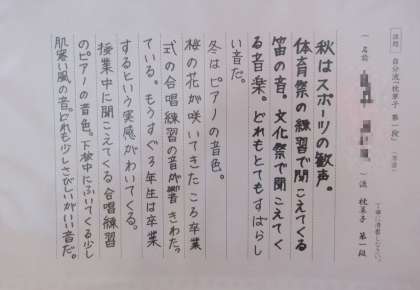 課題 自分流「枕草子 第一段」(清書)
丁寧に清書しなさい。
(名前 )流 枕草子 第一段
秋はスポーツの歓声。
体育祭の練習で聞こえてくる
笛の音。文化祭で聞こえてく
る音楽。どれもとてもすばらし
い音だ。
冬はピアノの音色。
桜の花が咲いてきたころ卒業
式の合唱練習の音が響きわた
ている。もうすぐ3年生は卒業
するという実感がわいてくる。
授業中に聞こえてくる合唱練習
のピアノの音色。下校中にふいてくる少し
肌寒い風の音。どれも少しさびしいがいい音だ。